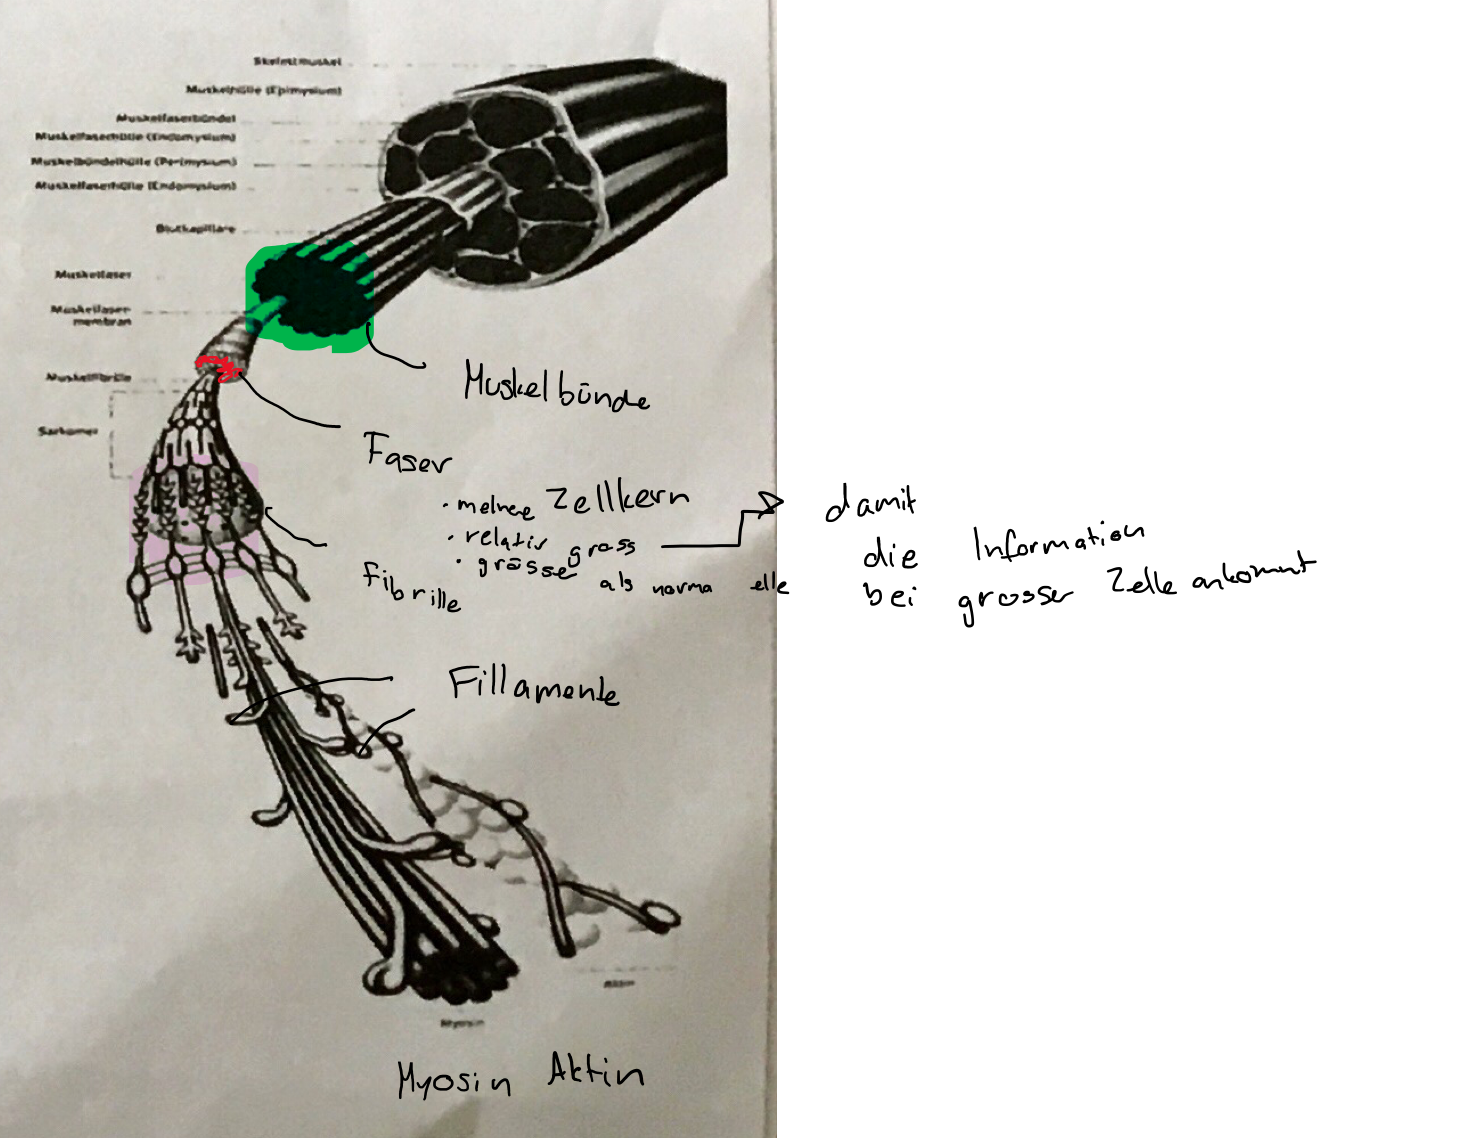 Skelettmuskel
Muskelhülle (Epimysium)
Muskelfaserbündel
Muskelfaserhülle (Endomysium)
Muskelbündelhülle (Perimysium)
Muskelfaserhülle (Endomysium)
Blutkapillare
Muskelfaser
Muskelfaser-
membran
Muskelfibrille
Sarkomer
Muskelbünde
Faser
· mehrere Zellkern
· relativ gross
· grösser als norma elle
damit
die Information
bei grosser Zelle ankommt
Fibrille
Fillamente
Aktin
Myosin
Myosin Aktin